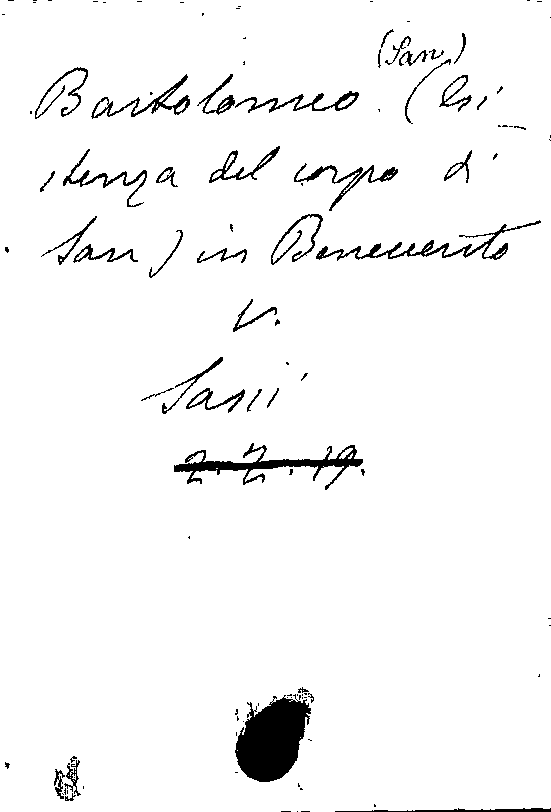 (San)
Bartolomeo (Esi-
stenza del corpo di
San) in Benevento
V.
2.2.19.